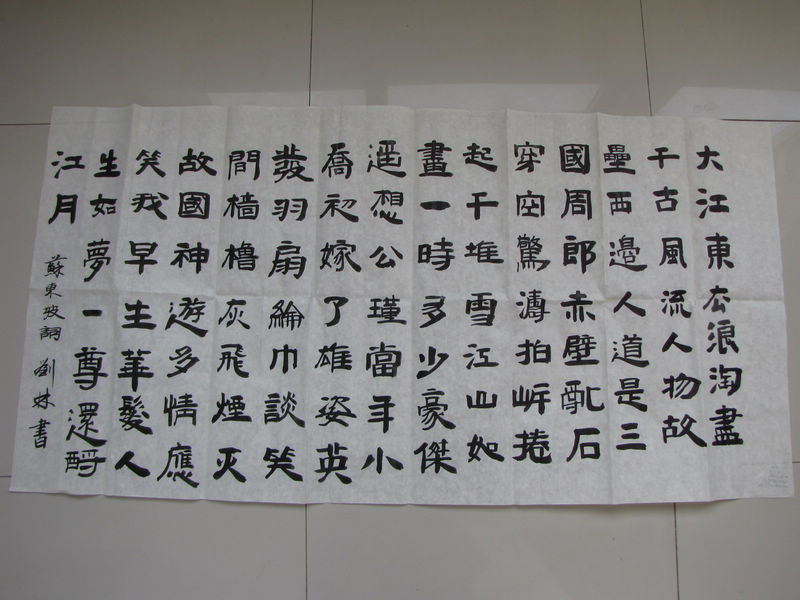 大江東去浪淘盡
千古風流人物故
壘西邊人道是三
國周郎赤壁亂石
穿空驚濤拍岸捲
起千堆雪江山如
畫一時多少豪傑
遥想公瑾當年小
喬初嫁了雄姿英
發羽扇綸巾談笑
間檣櫓灰飛煙灭
故國神遊多情應
笑我早生華髮人
生如夢一尊還酹
江月
蘇東坡詞 劉林書